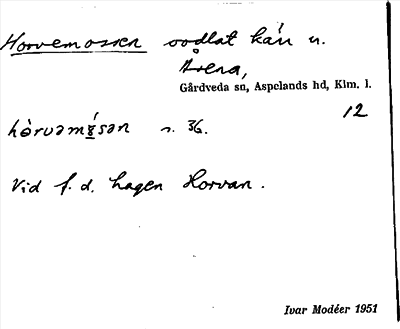 Horvemossen oodlat kärr n.
Årena,
Gårdveda sn, Aspelands hd, Klm. l.
12
hòrvəmǫ́sən n. 36.
Vid f.d. hagen Horvan.
Ivar Modéer 1951